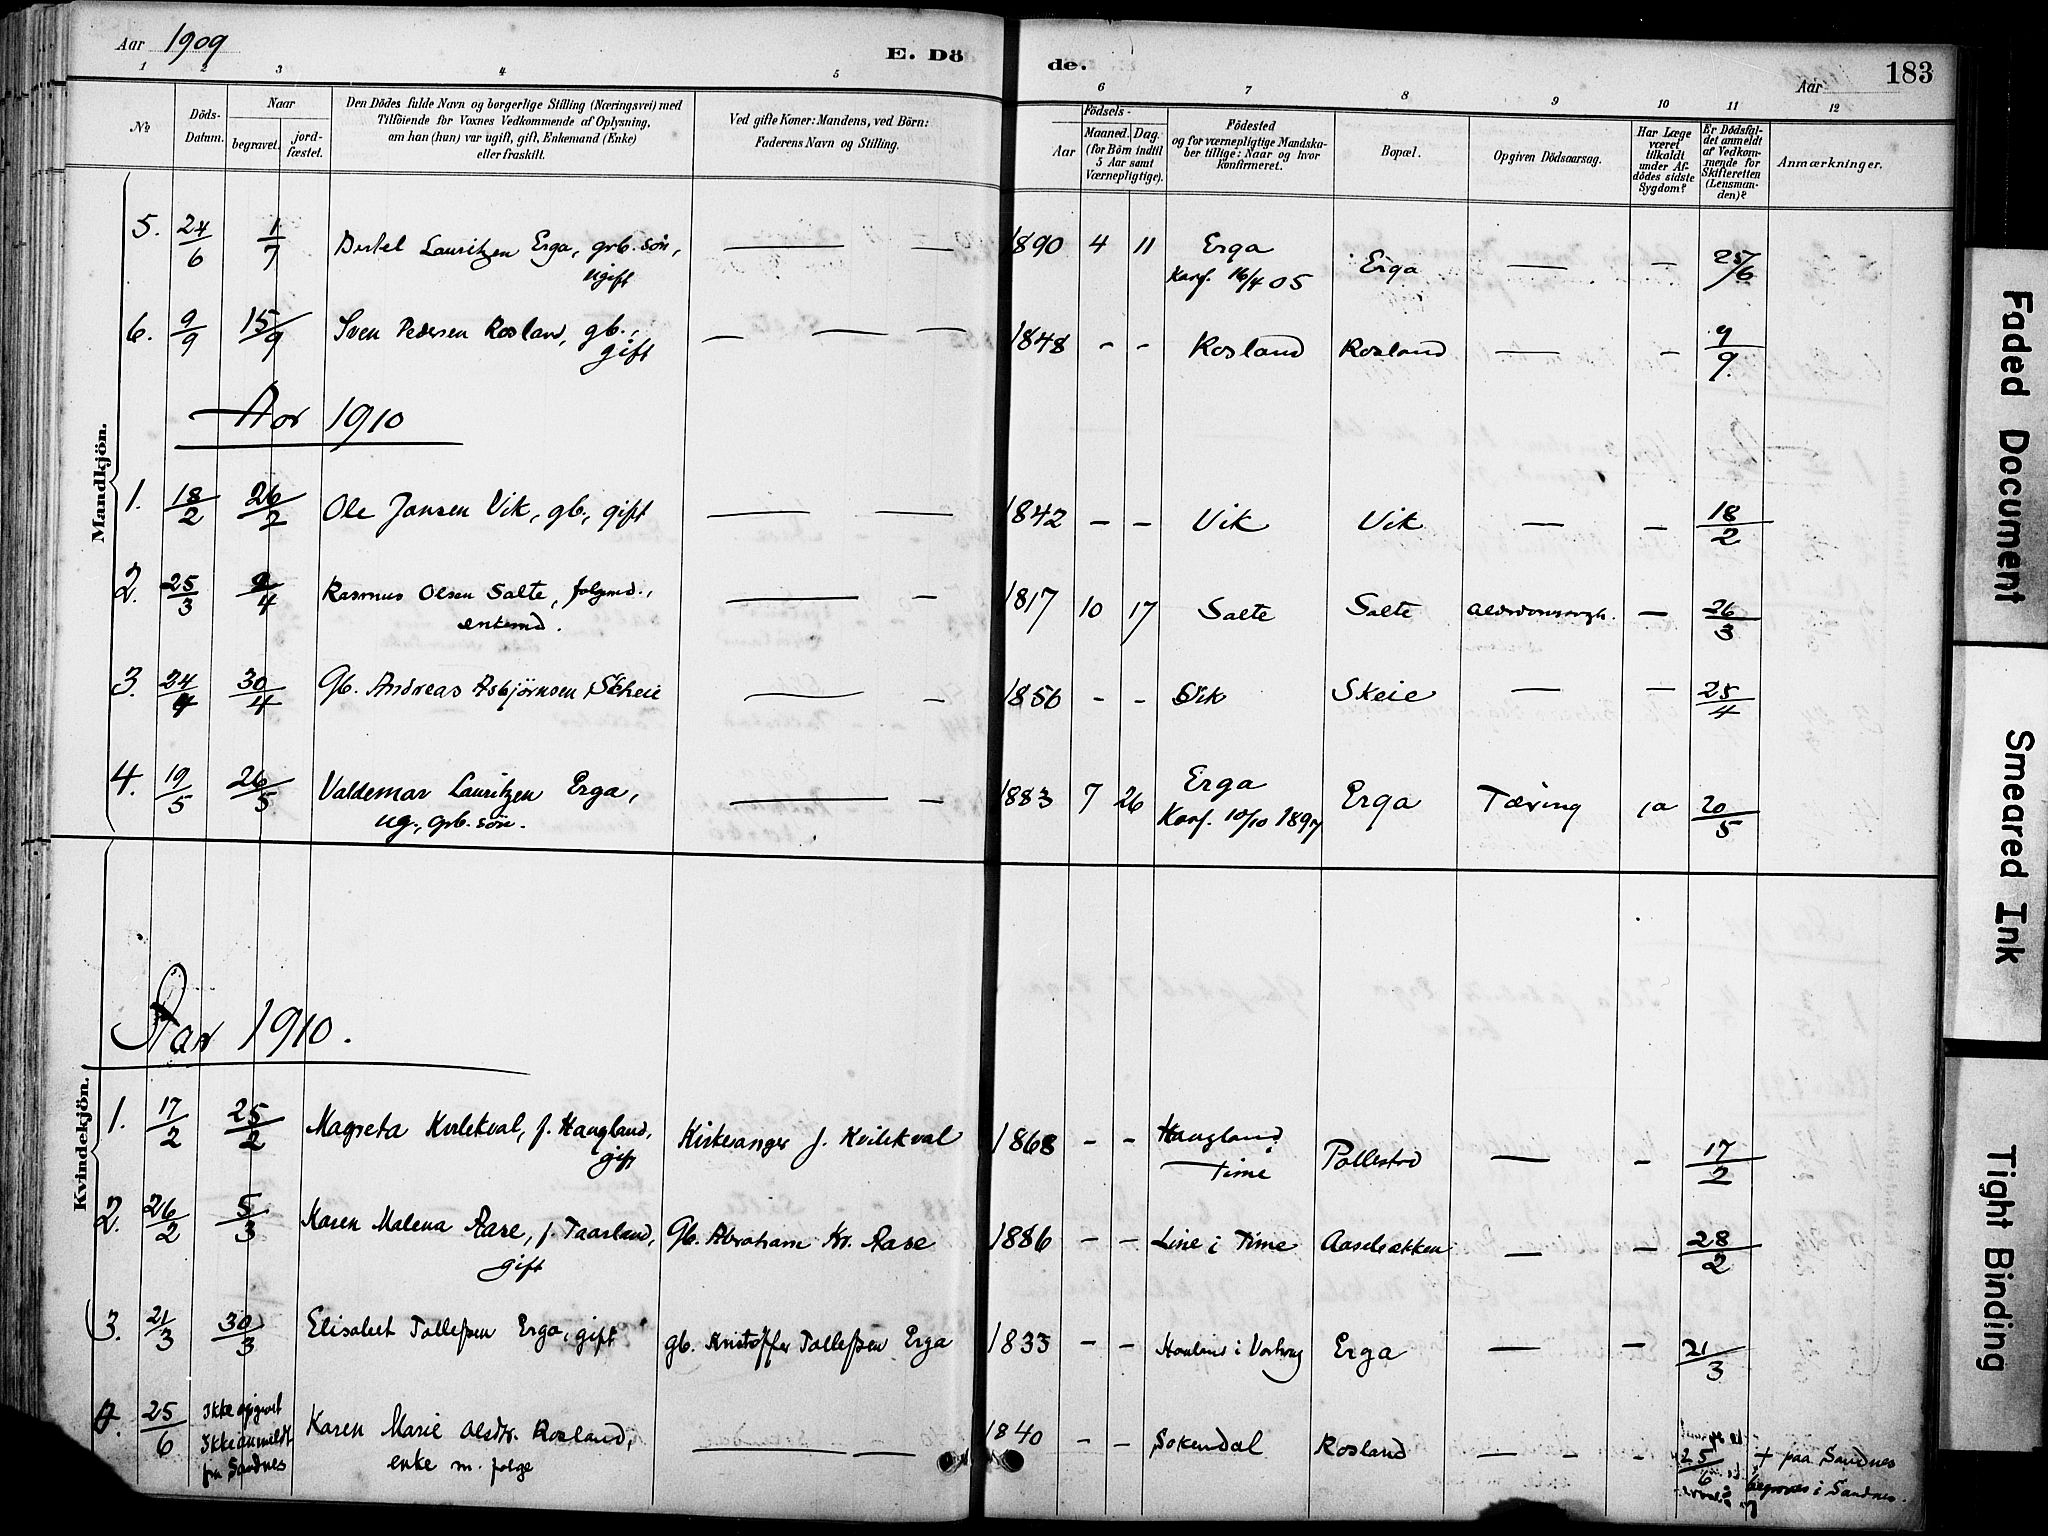 Aar 1909
E. Dö
de.
Aar
183
1 2 3 4 5 6 7 8 9 10 11 12
№
Döds-
Datum.
Naar
begravet.
jord-
fæstet.
Den Dödes fulde Navn og borgerlige Stilling (Næringsvei) med
Tilföiende for Voxnes Vedkommende af Oplysning,
om han (hun) var ugift, gift, Enkemand (Enke)
eller fraskilt.
Ved gifte Koner: Mandens, ved Börn:
Faderens Navn og Stilling.
Födsels-
Aar
Maaned. Dag.
(for Börn indtil
5 Aar samt
Værnepligtige).
Födested
og for værnepligtige Mandska-
ber tillige: Naar og hvor
konfirmeret.
Bopæl.
Opgiven Dödsaarsag.
Har Læge
været
tilkaldt
under Af-
dödes sidste
Sygdom?
Er Dödsfal-
det anmeldt
af Vedkom-
mende for
Skifteretten
(Lensman-
den)?
Anmærkninger.
Mandkjön.
5. 24/6 1/7 Lauritzen Erga, grb. søn, — — 1890 4 11 Erga Erga — — 25/6
ugift
Konf. 16/4 05
6. 9/9 15/9 Sven Pedersen Rosland, gb., — — — 1848 - - Rosland Rosland — - 9/9
gift
Aar 1910
1. 18/2 26/2 Ole Jansen Vik, gb., gift — — 1842 - - Vik Vik — - 18/2
2. 25/3 2/4 Rasmus Olsen Salte, folgemd., — — 1817 10 17 Salte Salte — 26/3
enkemd.
3. 24/4 30/4 Gb. Andreas Asbjørnsen Skeie — — 1856 - - Vik Skeie — - 25/4
4. 19/5 26/5 Valdemar Lauritzen Erga, — — 1883 7 26 Erga Erga Tæring ja 20/5
ug., grb. søn.
Konf. 10/10 1897
Aar 1910.
Kvindekjön.
1. 17/2 25/2 Magreta Kvilekval, f. Haugland, Kirkesanger J. Kvilekval 1868 - - Haugland Pollestad — - 17/2
gift
Time
2. 26/2 5/3 Karen Malena Aase, f. Taarland, Gb. Abraham Kr. Aase 1886 - - Line i Time Aaselsækken — - 28/2
gift
3. 21/3 30/3 Elisabet Tollefsen Erga, gift gb. Kristoffer Tollefsen Erga 1833 - - Erga — - 21/3
25/6 Ikke opgivet Karen Marie Olsdtr. Rosland, — — 1840 - - Sokendal Rosland - - - 25/6 + paa Sandnes
Ikke anmeldt
fra Sandnes
enke m. folge
begraves i Sandnes.
Faded Document
Smeared Ink
Tight Binding